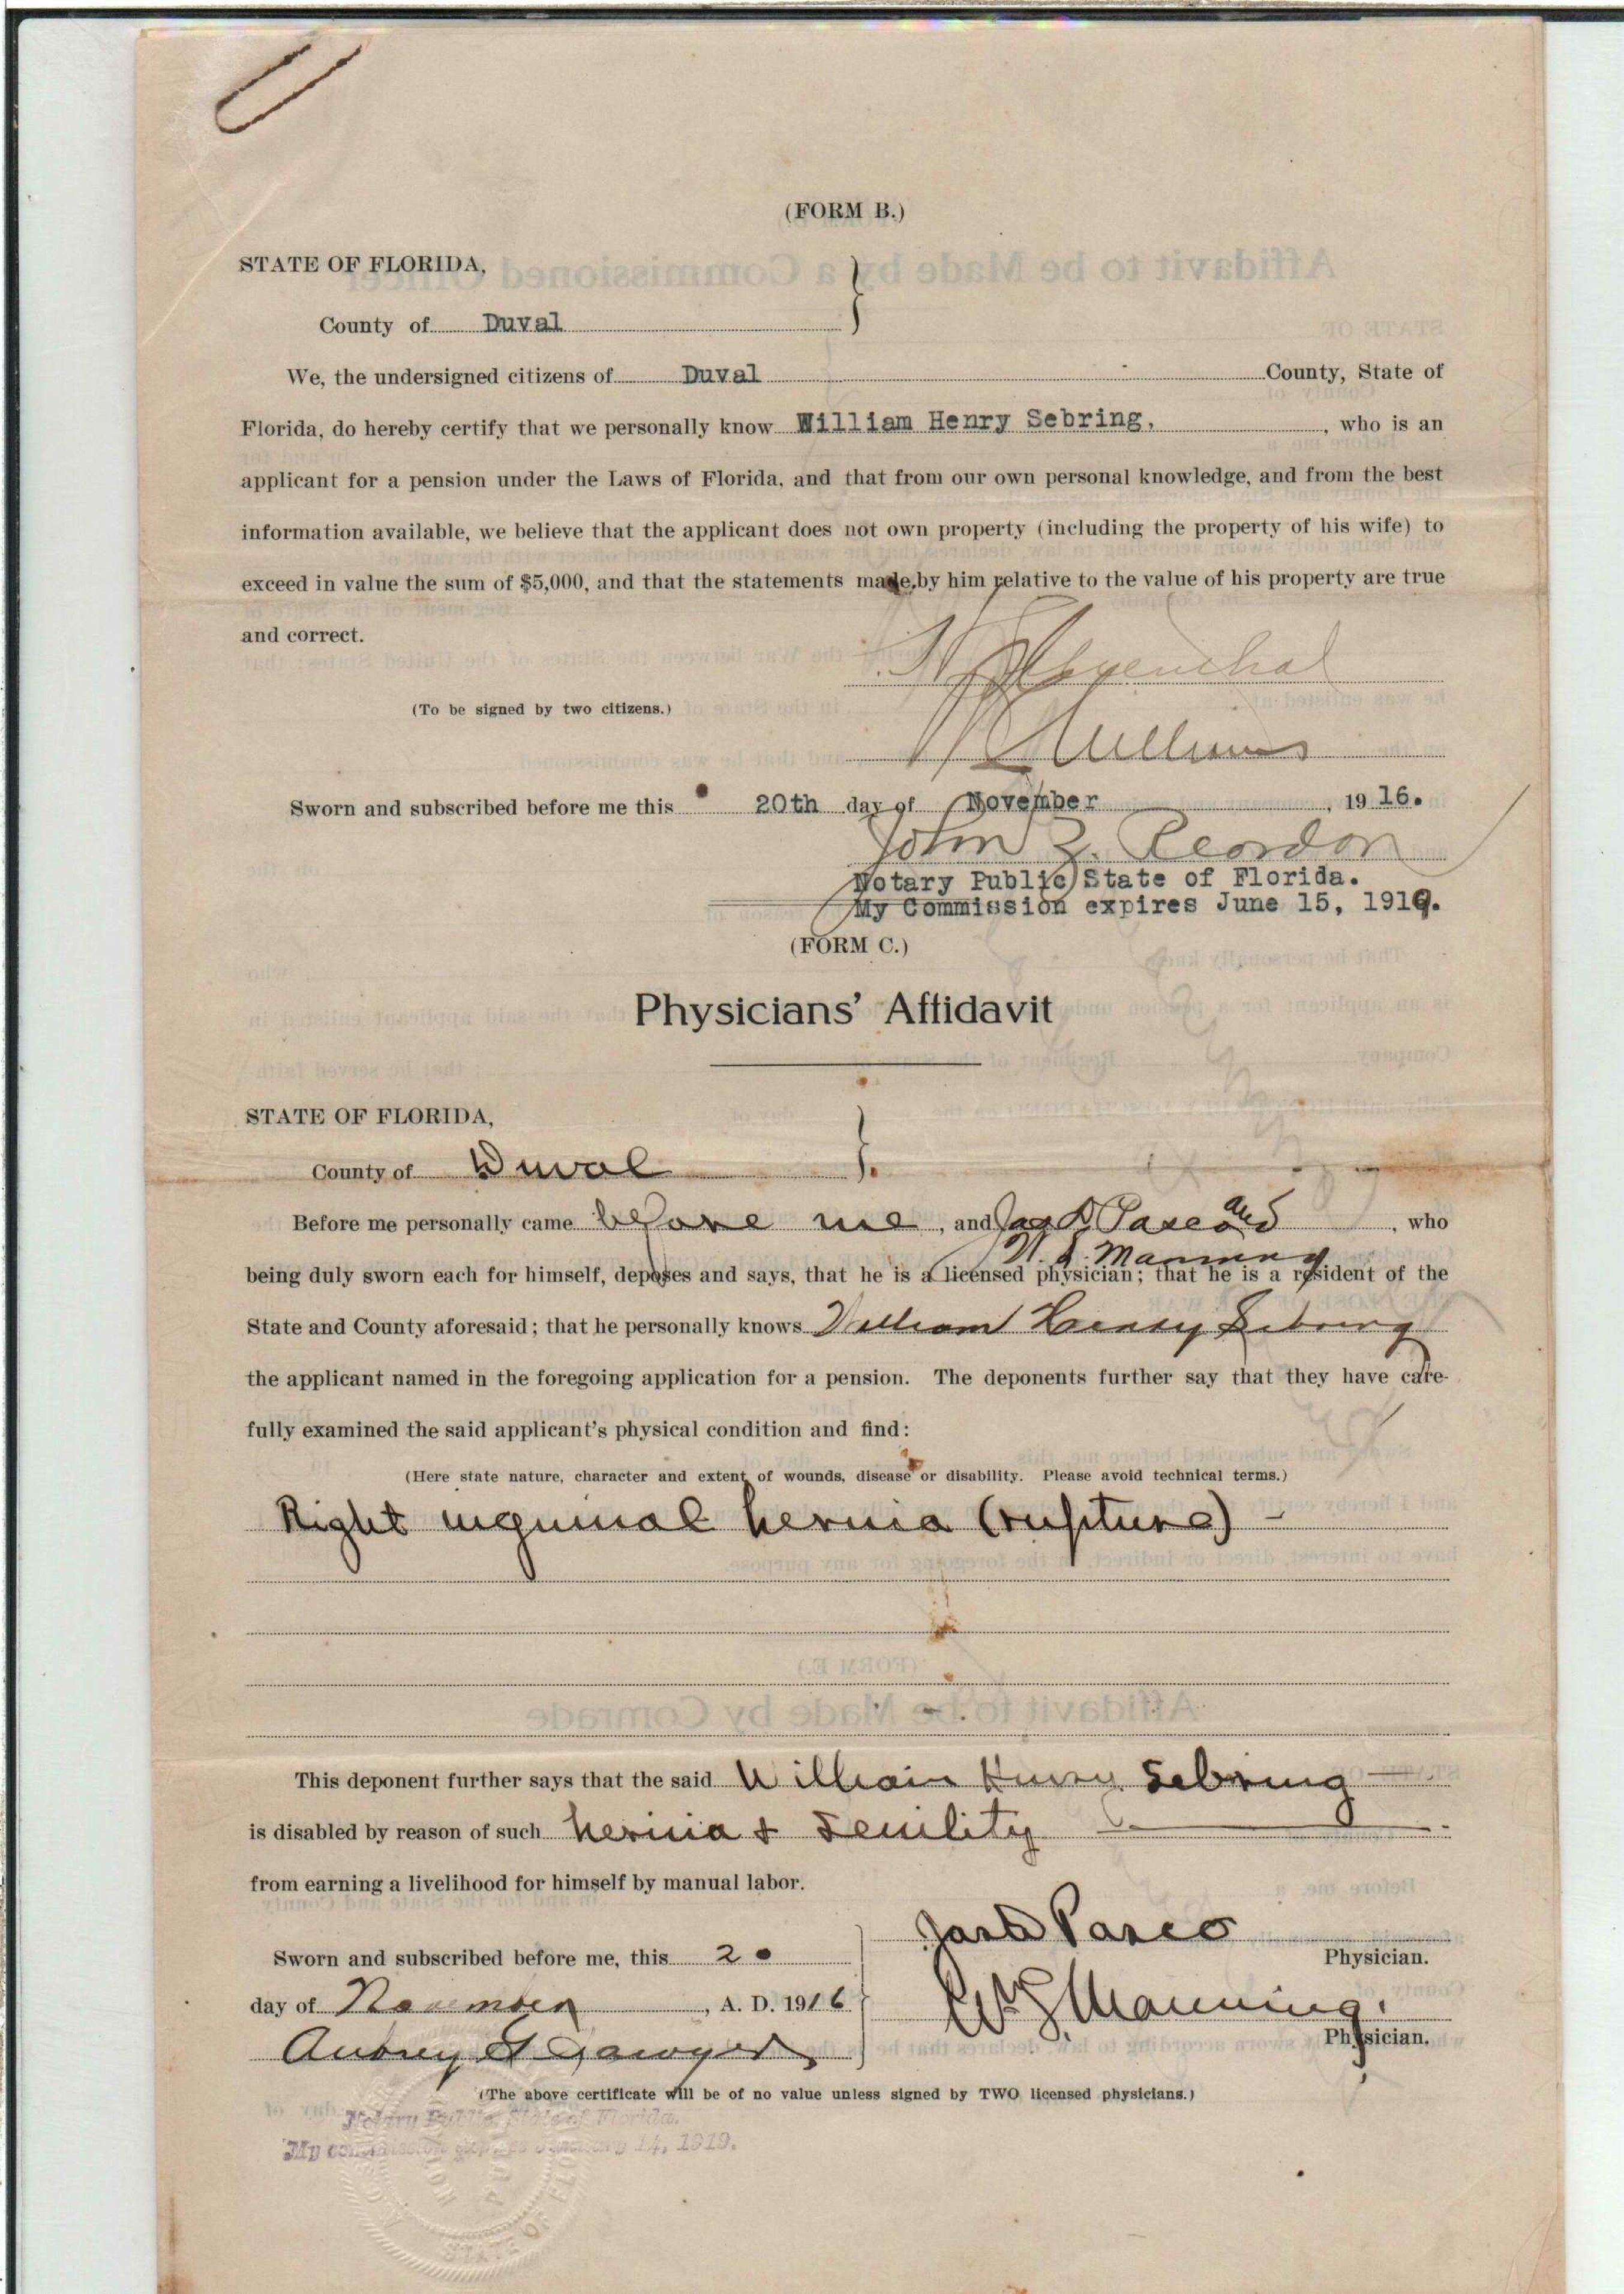 (FORM B.)
STATE OF FLORIDA,
County of Duval
We, the undersigned citizens of Duval County, State of
Florida, do hereby certify that we personally know William Henry Sebring, , who is an
applicant for a pension under the Laws of Florida, and that from our own personal knowledge, and from the best
information available, we believe that the applicant does not own property (including the property of his wife) to
exceed in value the sum of $5,000, and that the statements made by him relative to the value of his property are true
and correct.
(To be signed by two citizens.)
Williams
Sworn and subscribed before me this 20th day of November , 1916.
John Z. Reardon
Notary Public State of Florida.
My Commission expires June 15, 1919.
(FORM C.)
Physicians' Affidavit
STATE OF FLORIDA,
County of Duval
Before me personally came before me , and Jas D Pasco and , who
W. S. Manning
being duly sworn each for himself, deposes and says, that he is a licensed physician; that he is a resident of the
State and County aforesaid; that he personally knows William Henry Sebring
the applicant named in the foregoing application for a pension. The deponents further say that they have care-
fully examined the said applicant's physical condition and find:
(Here state nature, character and extent of wounds, disease or disability. Please avoid technical terms.)
Right inguinal hernia (rupture) -
This deponent further says that the said William Henry Sebring
is disabled by reason of such hernia + senility
from earning a livelihood for himself by manual labor.
Jas D Pasco
Physician.
Sworn and subscribed before me, this 20
day of November , A. D. 1916
W S Manning.
Physician.
Aubrey Sawyer
(The above certificate will be of no value unless signed by TWO licensed physicians.)
Notary Public, State of Florida.
My commission expires January 14, 1919.